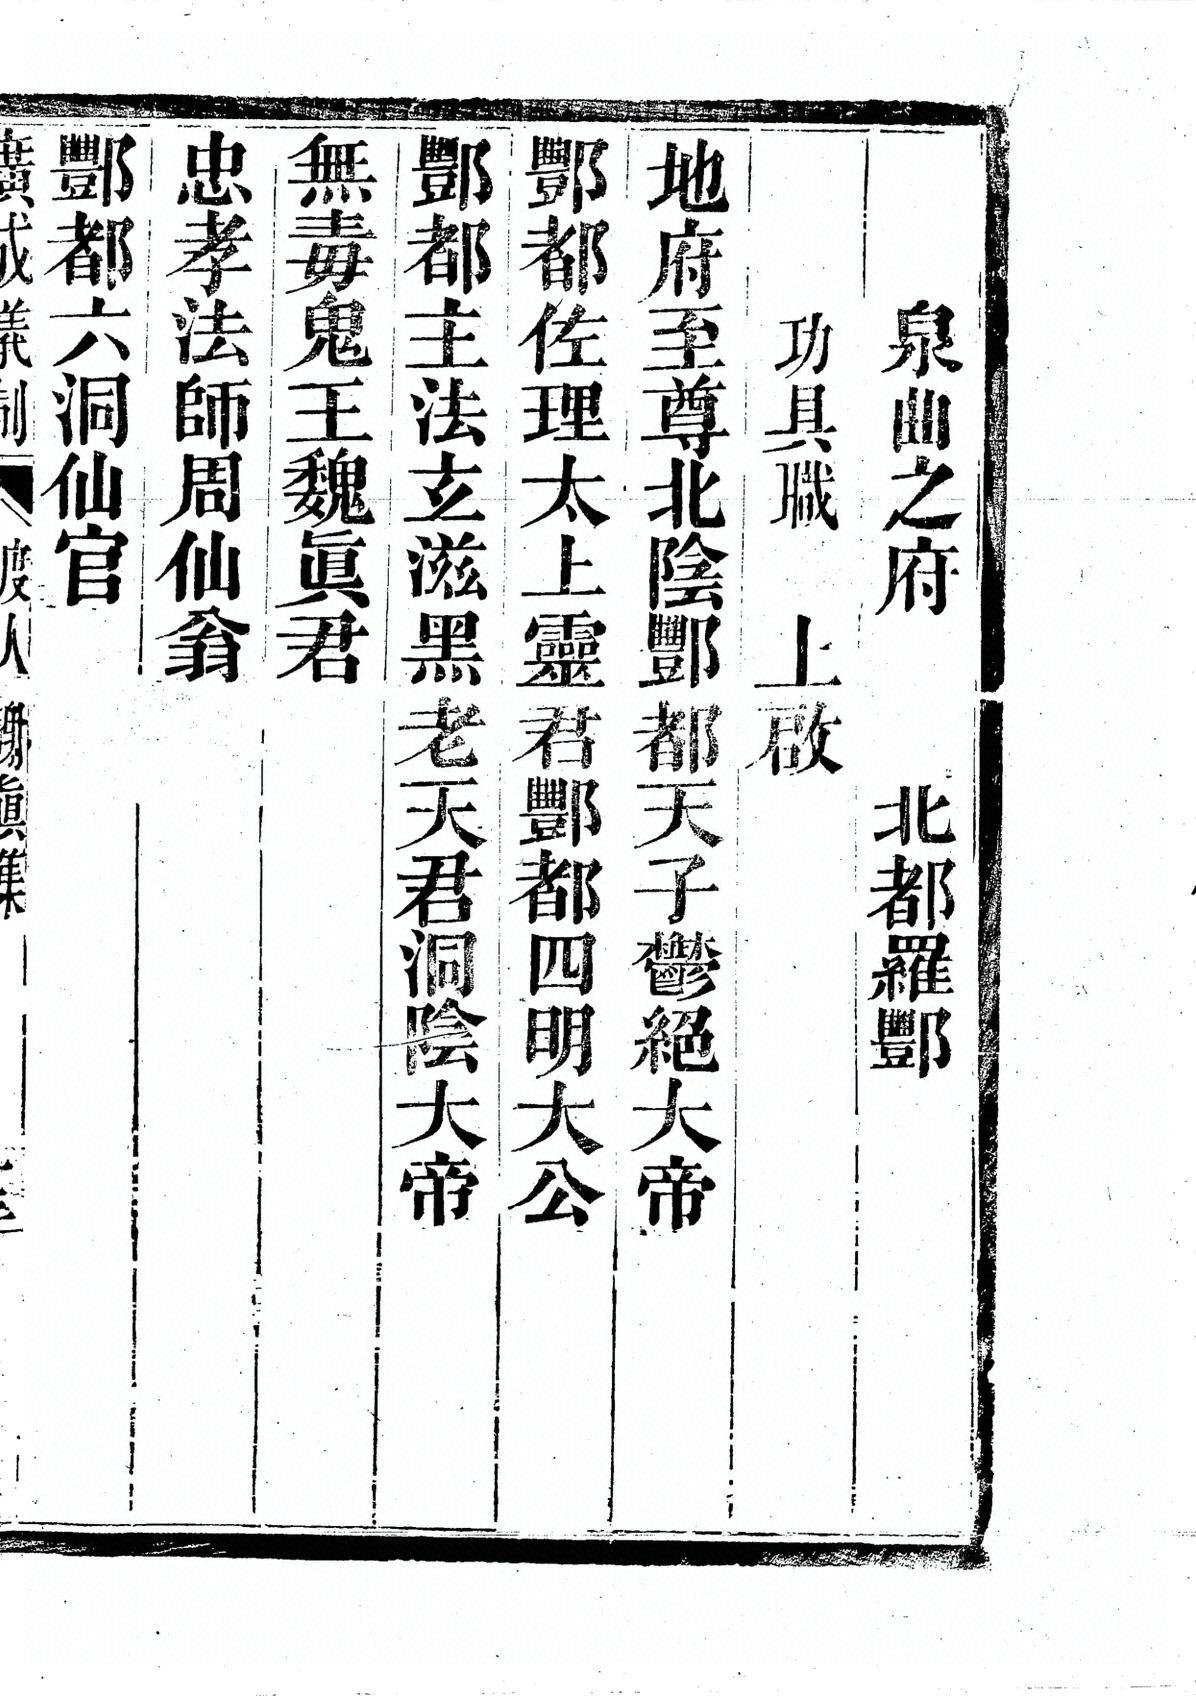 泉曲之府　北都羅酆
功具職　上啟
地府至尊北陰酆都天子鬱絕大帝
酆都佐理太上靈君酆都四明大公
酆都主法玄滋黑老天君洞陰大帝
無毒鬼王魏眞君
忠孝法師周仙翁
酆都六洞仙官
廣成儀制